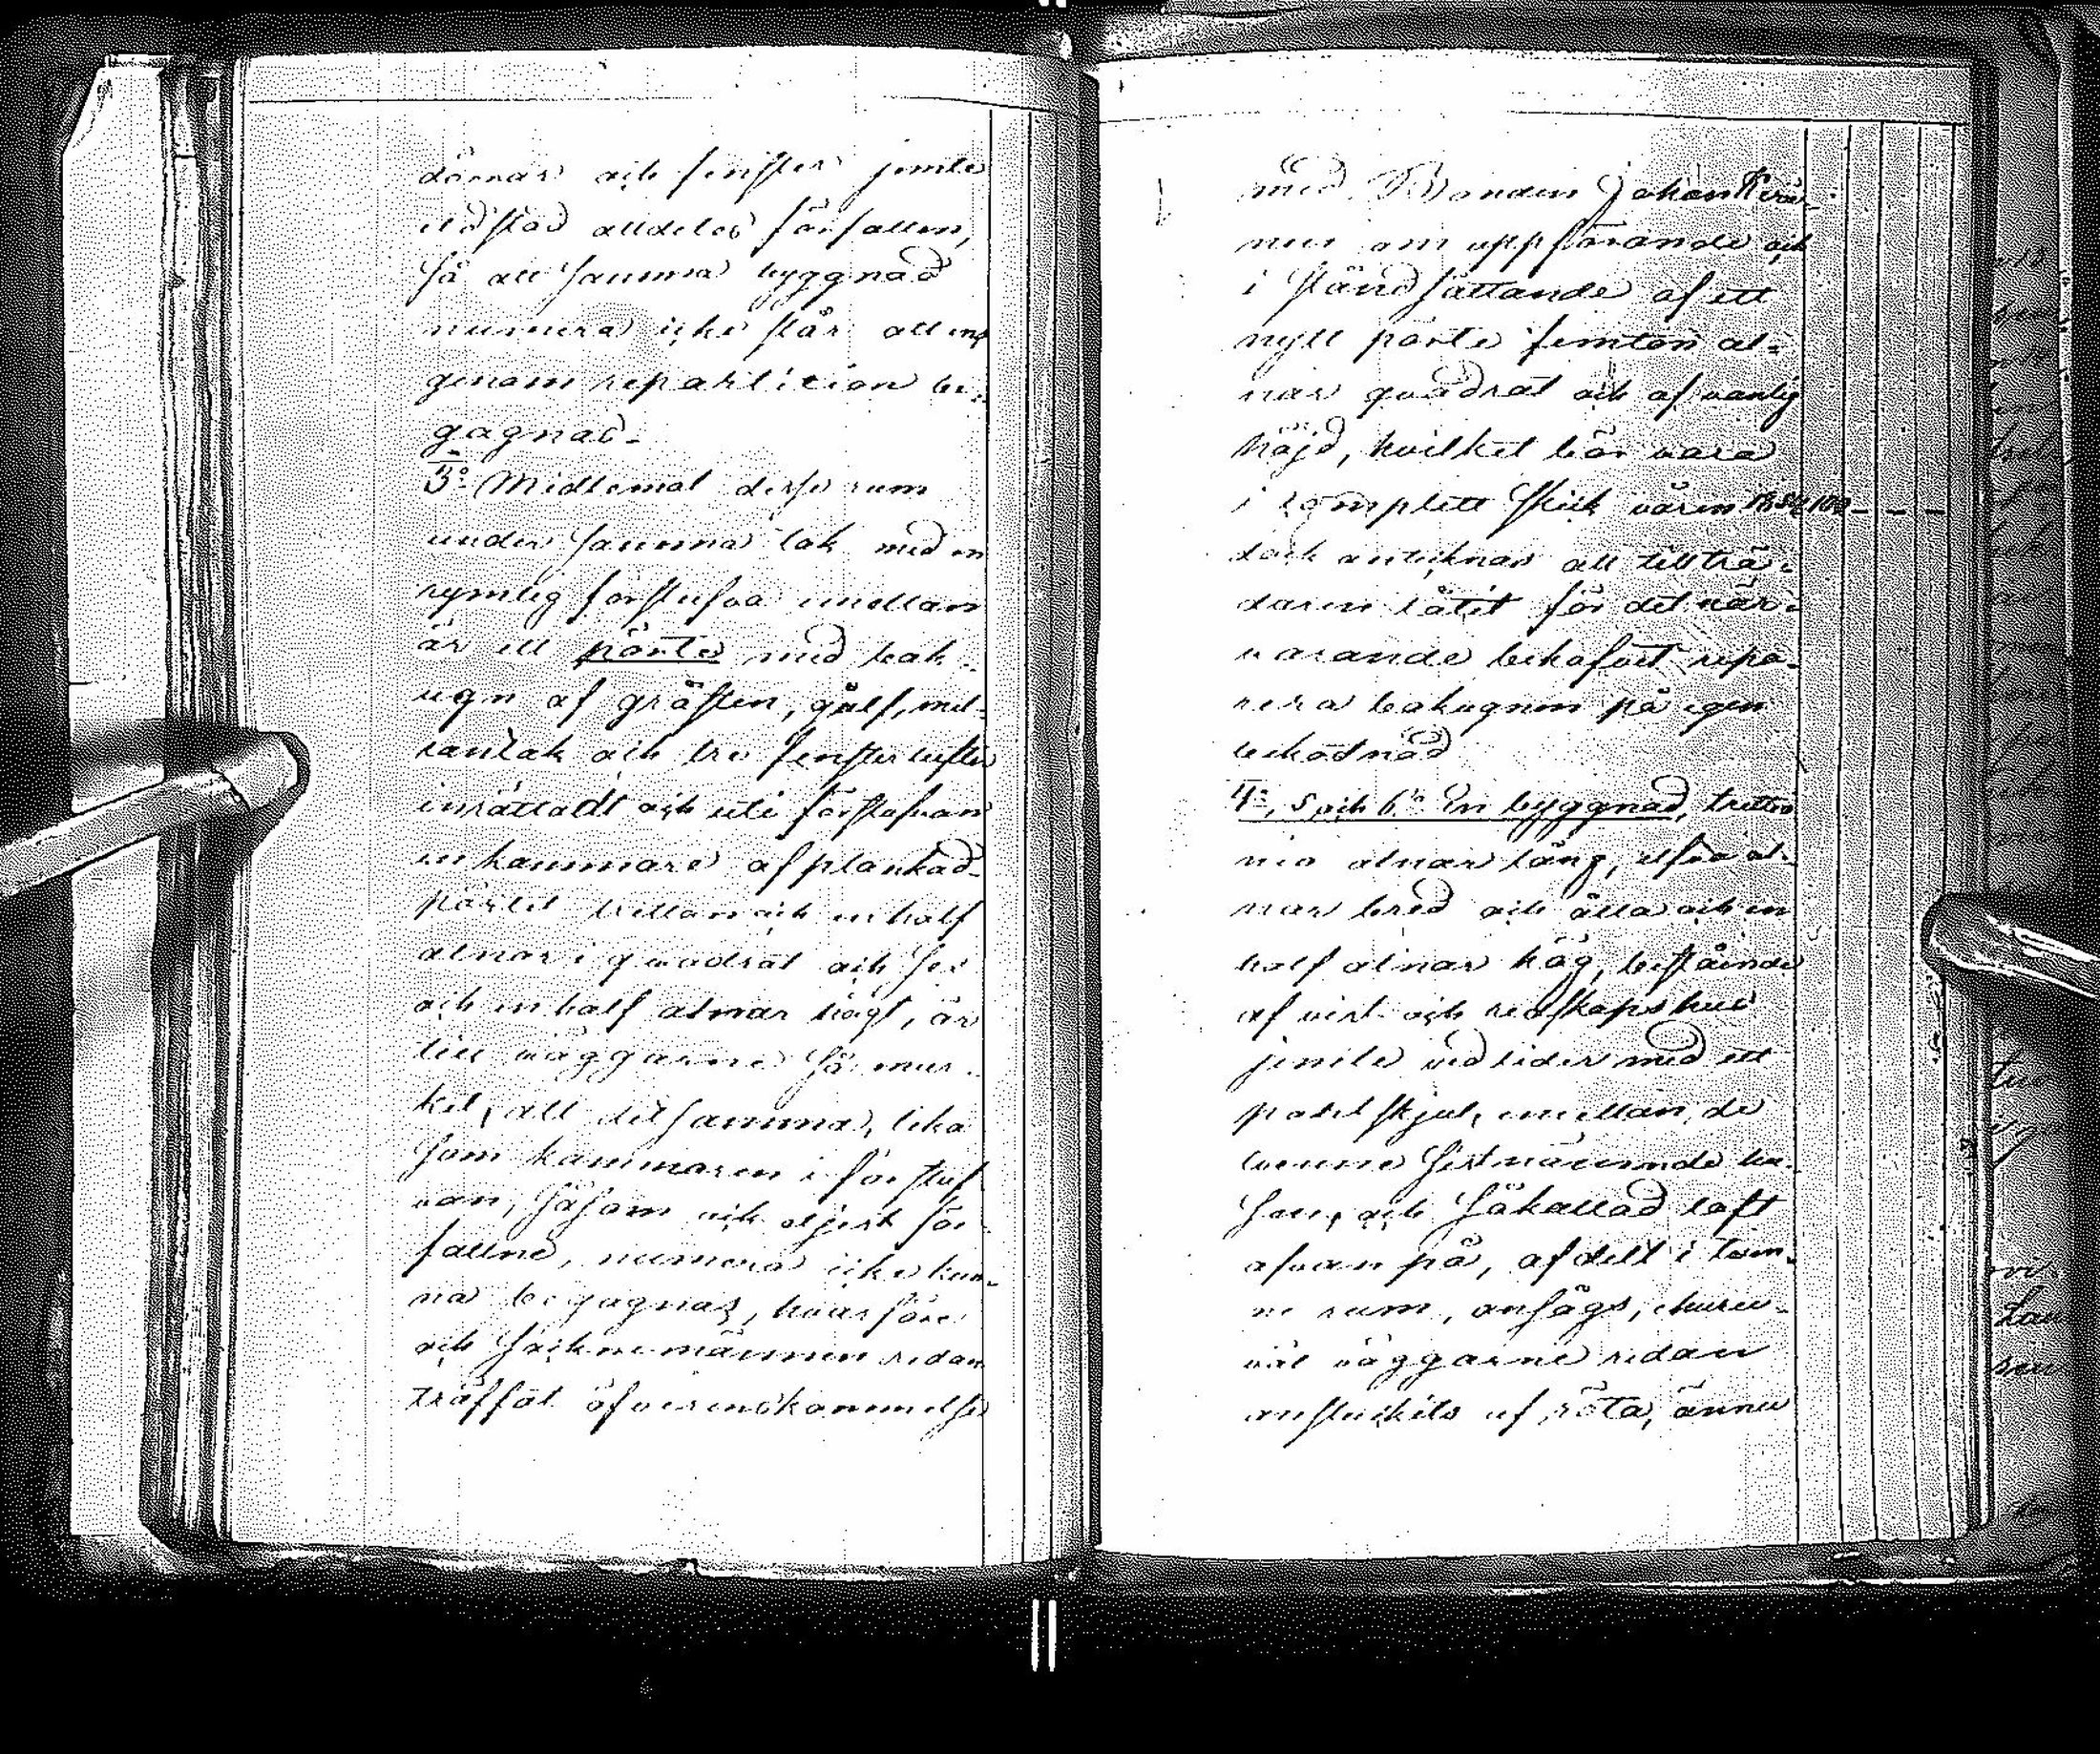 dörrar och fenster jemte
eldstad alldeles förfallen,
så att samma byggnad
numera icke står att en
genom repartition be-
gagnad.
3:o Midtemot desse rum
under samma tak med en
rymlig förstufva emellan
är ett pörte med bak-
ugn af gråsten, gålf, mel-
lantak och tre fensterlufter
inrättadt och uti förstufvan
en kammare af plankad
pörtet tretton och en half
alnar i quadrat och sex
och en half alnar högt, är
till väggarne så mur-
ket, att detsamma, lika
som kammaren i förstuf
van, såsom ock eljest för-
fallne, numera icke kun-
na begagnas, hvarföre
ock Synemännen redan
träffat öfverenskommelse
med Bonden Johan
om uppförande och
i ståndsättande af ett
nytt pörte femton al-
nar quadrat och af vanlig
höjd, hvilket bör vara
i komplett skick våren
dock antecknas att tillträ-
daren låtit för det när-
varande behofvet repa-
rera bakugnen på egen
bekostnad
4:o, 5 och 6:o En byggnad, trettio
nio alnar lång, elfva al-
nar bred och åtta och en
half alnar hög, bestående
af vist- och redskapshus
jemte vedlider med ett
portskjul, emellan de
tvenne sistnämnde hu-
sen, och såkallad loft
ofvan på, afdelt i tven-
ne rum, ansågs, churu-
väl väggarne redan
anstuckits af röta, ännu